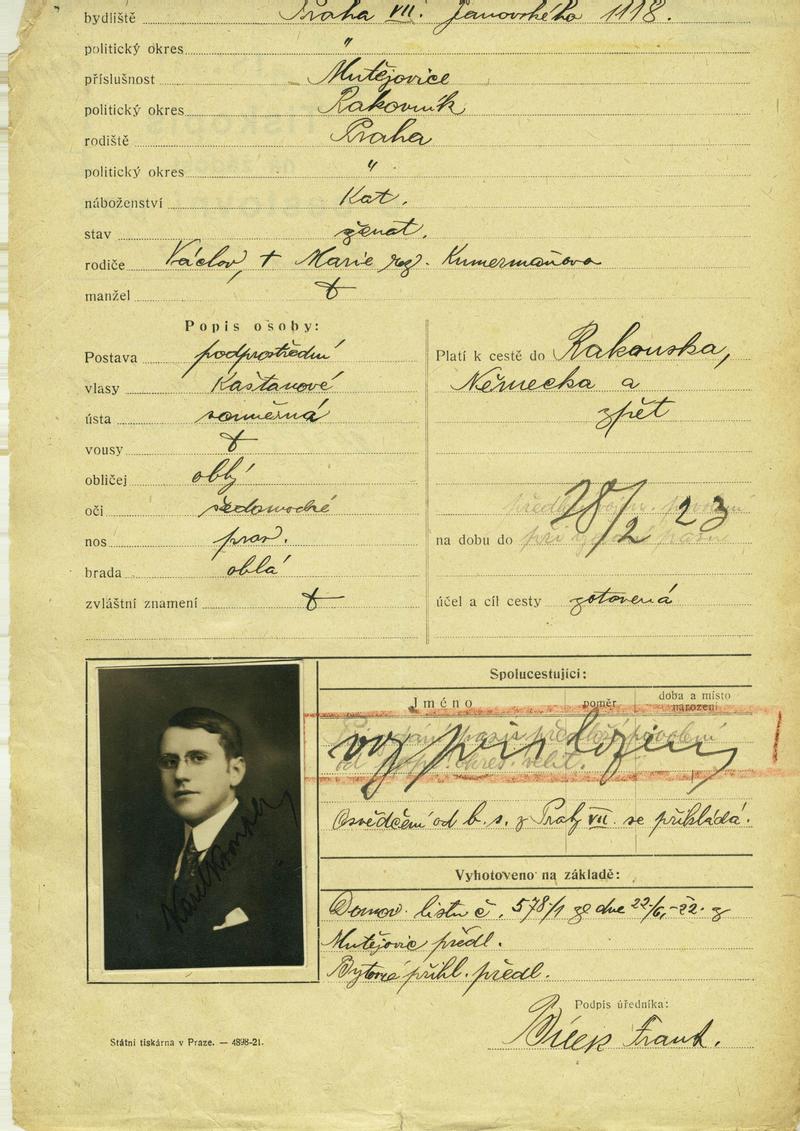 bydliště Praha VII. Janovského 1118.
politický okres "
příslušnost Mutějovice
politický okres Rakovník
rodiště Praha
politický okres "
náboženství Kat.
stav ženat.
rodiče Václav, + Marie roz. Kumermanova
manžel +
Popis osoby:
Postava podprostřední
vlasy Kaštanové
ústa souměrná
vousy +
obličej oblý
oči šedomodré
nos prav.
brada oblá
zvláštní znamení +
Platí k cestě do Rakouska,
Německa a
zpět
na dobu do 28/2 23
účel a cíl cesty zotavená
Spolucestující:
Jméno poměr doba a místo narození
předloží povolení
Osvědčení od b. s. z Prahy VII se přikládá.
Vyhotoveno na základě:
Domov. listu č. 578/1 ze dne 22/6.-22. z
Mutějovic předl.
Bytová přihl. předl.
Podpis úředníka:
Bílek Frant.
Karel
Státní tiskárna v Praze. — 4898-21.